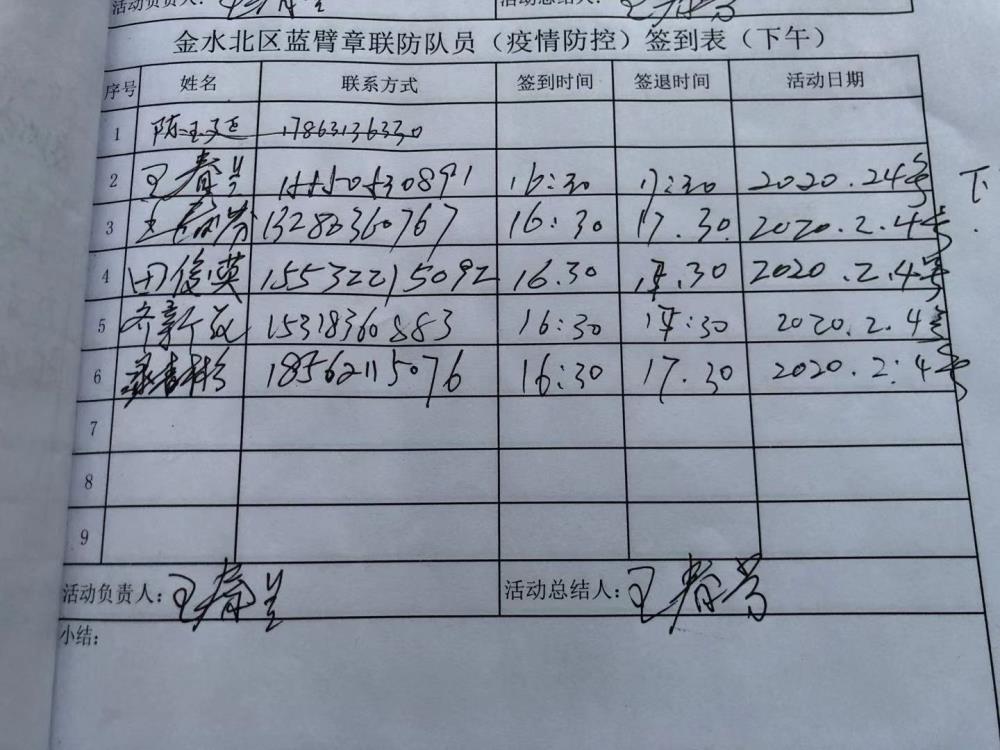 活动负责人: 王春兰 活动总结人: 王春芳
金水北区蓝臂章联防队员（疫情防控）签到表（下午）
序号 姓名 联系方式 签到时间 签退时间 活动日期
1 陈玉延 17863136330
2 王春兰 15550530891 16:30 17:30 2020.24号 下
3 王春芳 13280360767 16:30 17.30 2020.2.4号
4 田俊英 15532215092 16.30 17.30 2020.2.4号
5 齐新 15318360883 16:30 17:30 2020.2.4号
6 18562115076 16:30 17.30 2020.2.4号
7
8
9
活动负责人: 王春兰 活动总结人: 王春芳
小结: